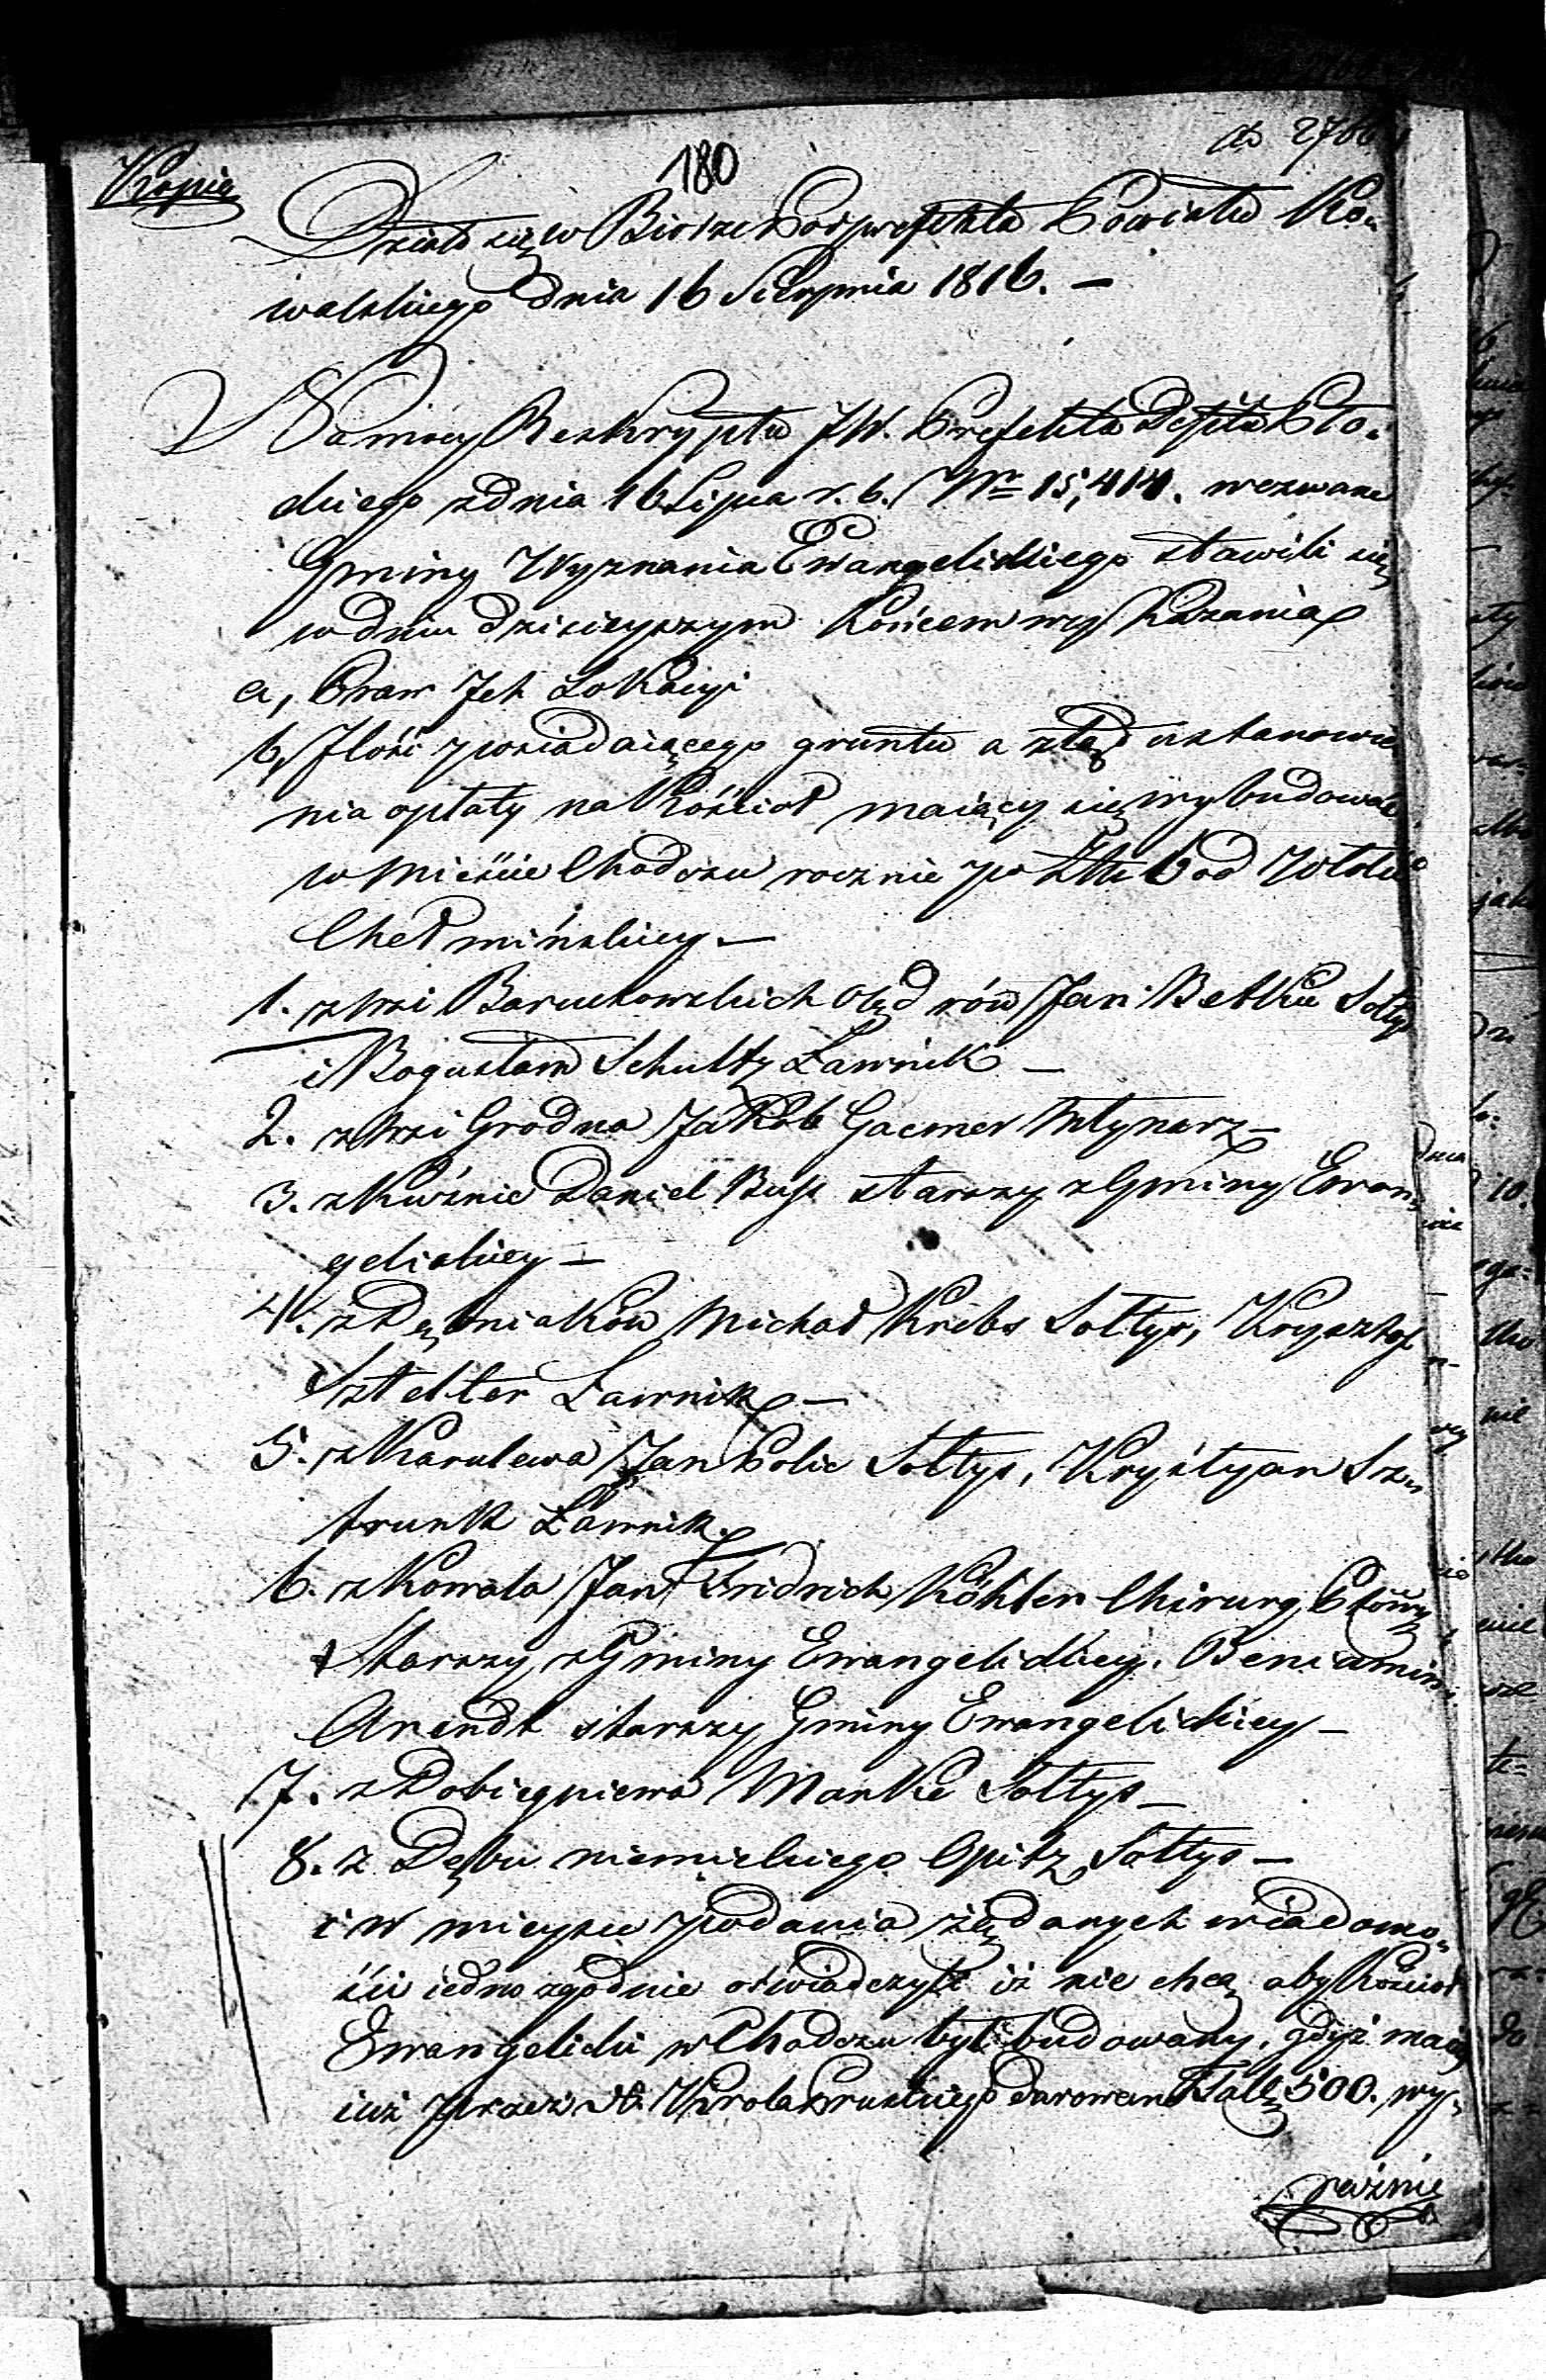 Kopia
180
do 2766
Działo się w Biórze Podprefekta Powiatu Ko-
walskiego dnia 16 Sierpnia 1816. —
Na mocy Reskryptu JW. Prefekta Deptu Pło-
ckiego z dnia 16 Lipca r. b. Nr 15,414. wezwane
Gminy Wyznania Ewangelickiego stawili się
w dniu dzisieyszym końcem wyKazania
a, Praw Jch LoKacyi
b, Jlość posiadaiącego gruntu a ztąd ustanowie
nia opłaty na Kościoł maiący się wybudować
w Mieście Chodczu rocznie po Złtt 6 od Włoki
Chełmińskiey —
1. z Wsi Baruchowskich Olędrów Jan Betke Sołtys
i Bogusław Schultz Ławnik —
2. z Wsi Grodna Jakób Gaemer Młynarz —
3. z Kuźnic Daniel Buſse starszy z Gminy Ewan-
gelickiey —
4. z Dębniaków Michał Kribs Sołtys, Krysztof
Sztelter Ławnik —
5. z Karolewa Jan Polic Sołtys, Krystyan Sz-
trunk Ławnik.
6. z Kowala Jan Fridrich Köhler Chirurg
Starszy z Gminy Ewangelickiey. Beniamin
Arendt starszy Gminy Ewangelickiey —
7. z Dobiegniewa Manke Sołtys —
8. z Dębu niemieckiego Opitz Sołtys —
i w mieyscu podania żądanych wiadomo-
ści iednozgodnie oświadczyli iż nie chcą aby Kościoł
Ewangelicki w Chodczu był budowany, gdyż maią
iuż przez Króla Pruskiego darowane Tall 500. wy-
raźnie